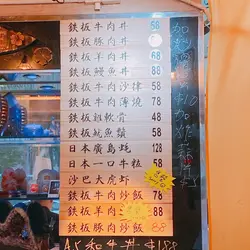 鉄板牛肉丼 68
鉄板豚肉丼 58
鉄板羊肉丼 68
鉄板鰻魚丼 88
鉄板牛肉沙律 58
鉄板牛肉薄燒 78
鉄板雞軟骨 48
鉄板魷魚鬚 58
日本廣島蚝 128
日本一口牛粒 58
沙巴大虎蝦
鉄板牛肉炒飯 78
鉄板羊肉
鉄板豚肉炒飯 88
A5和牛丼 $188